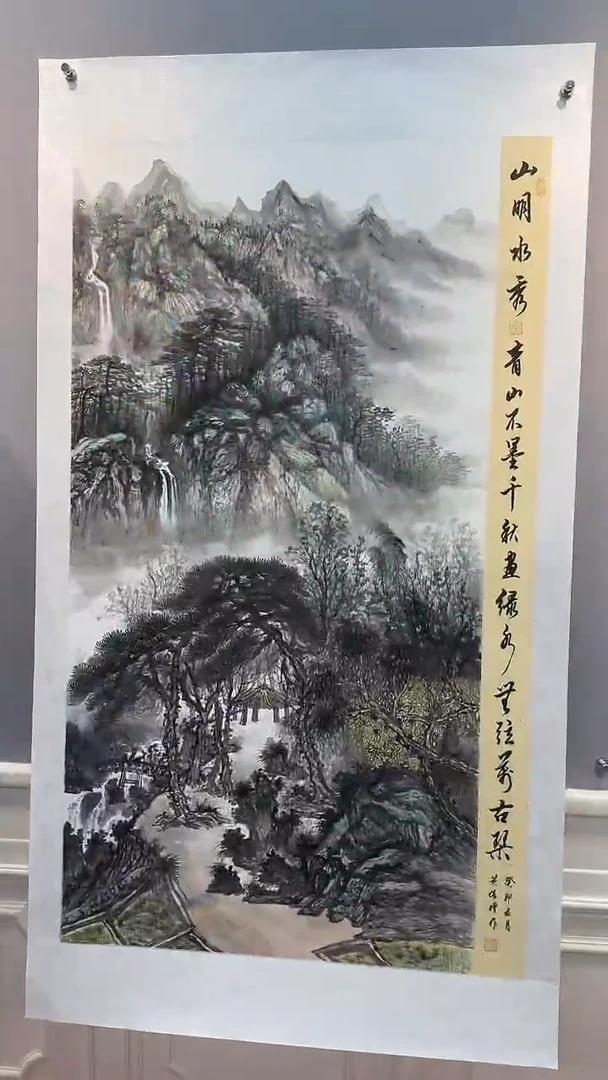 山明水秀 青山不墨千秋画绿水无弦万古琴
癸卯五月